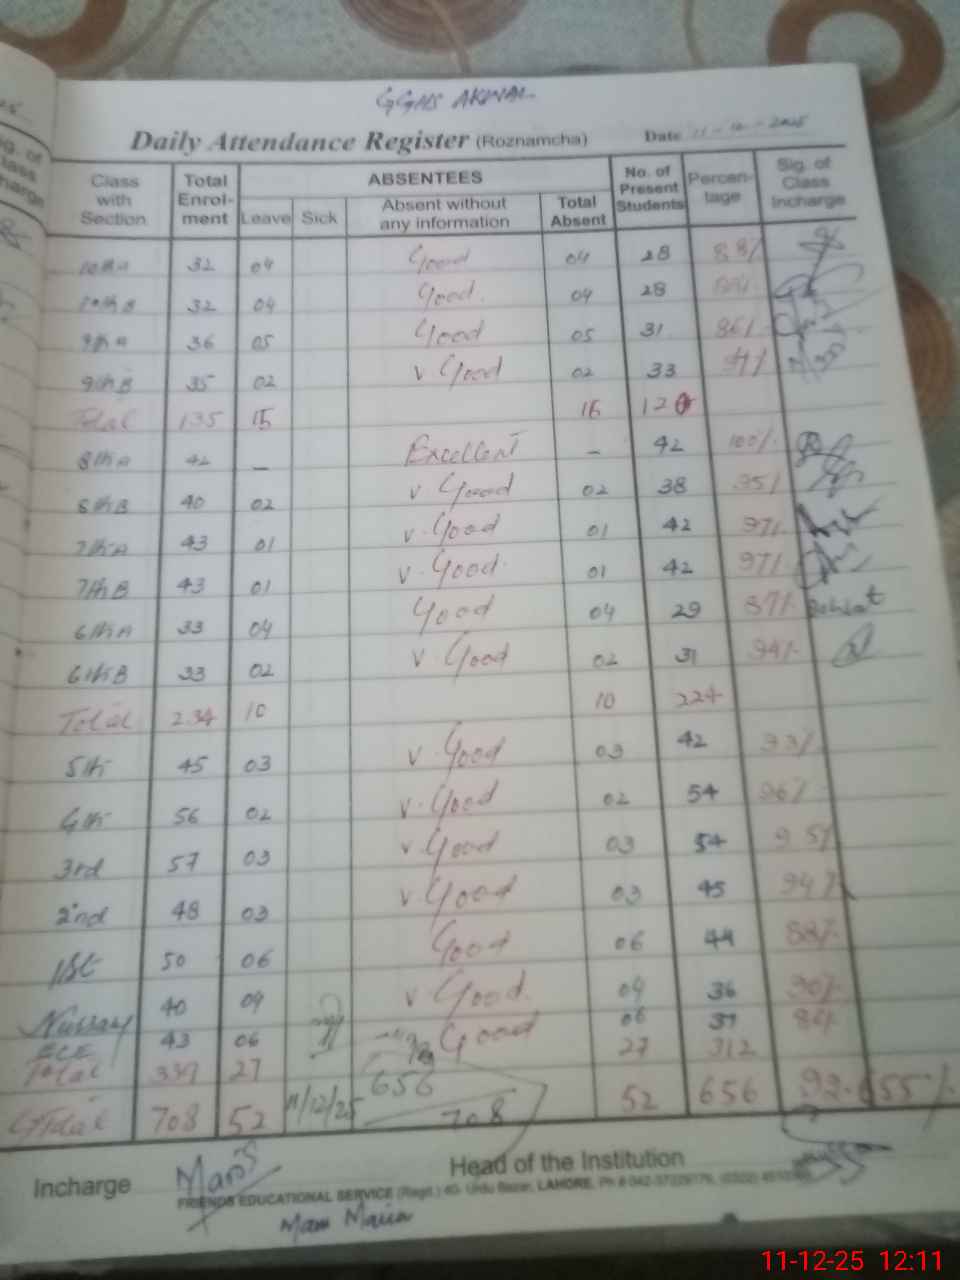 GGHS AKWAL
Daily Attendance Register (Roznamcha) Date 11-12-2025
Class with Section Total Enrol-ment ABSENTEES No. of Present Students Percen-tage Sig. of Class Incharge
Leave Sick Absent without any information Total Absent
10th A 32 04 Good 04 28 88%
10th B 32 04 Good 04 28
9th A 36 05 Good 05 31 86%
9th B 35 02 v Good 02 33
Total 135 15 120
8th A 42 – Excellent – 42 100%
8th B 40 02 v Good 02 38 95%
7th A 43 01 v. Good 01 42 97%
7th B 43 01 v. Good 01 42 97%
6th A 33 04 Good 04 29 87%
6th B 33 02 v Good 02 31 94%
Total 234 10 10 224
5th 45 03 v. Good 03 42 93%
4th 56 02 v. Good 02 54 96%
3rd 57 03 v Good 03 54 95%
2nd 48 03 v Good 03 45 94%
1st 50 06 Good 06 44 88%
Nursary 40 04 v Good 04 36 90%
ECE 43 06 Good 06 37
Total 27 27 312
G Total 708 52 11/12/25 656 52 656 92.655%
708
Incharge Head of the Institution
FRIENDS EDUCATIONAL SERVICE (Regd.) 40- Urdu Bazar, LAHORE.
11-12-25 12:11